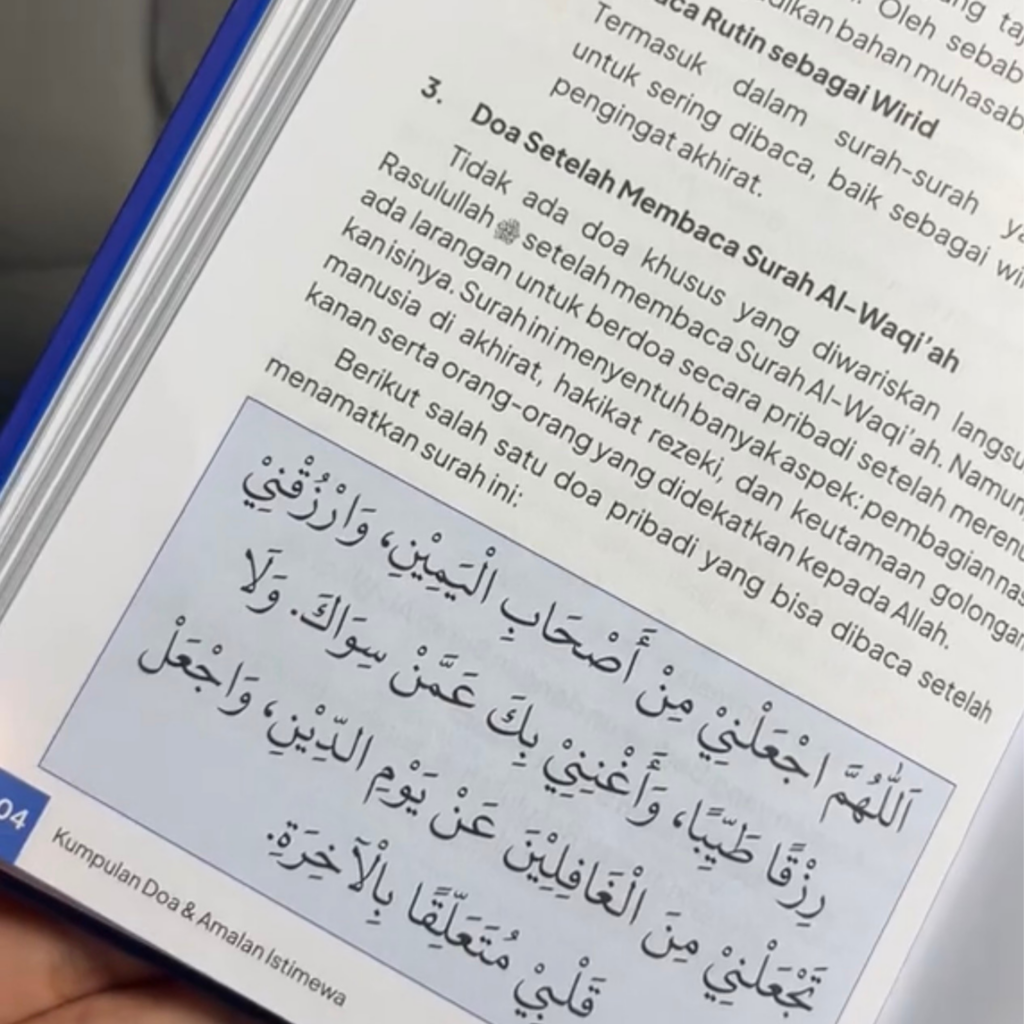 Oleh sebab
dikan bahan muhasab
Rutin sebagai Wirid
Termasuk dalam surah-surah
untuk sering dibaca, baik sebagai
pengingat akhirat.
3. Doa Setelah Membaca Surah Al-Waqi'ah
Tidak ada doa khusus yang diwariskan langsu
Rasulullah ﷺ setelah membaca Surah Al-Waqi'ah. Namun
ada larangan untuk berdoa secara pribadi setelah merenu
kan isinya. Surah ini menyentuh banyak aspek: pembagian nas
manusia di akhirat, hakikat rezeki, dan keutamaan golongan
kanan serta orang-orang yang didekatkan kepada Allah.
Berikut salah satu doa pribadi yang bisa dibaca setelah
menamatkan surah ini:
اَللّٰهُمَّ اجْعَلْنِيْ مِنْ أَصْحَابِ الْيَمِيْنِ، وَارْزُقْنِيْ
رِزْقًا طَيِّبًا، وَأَغْنِنِيْ بِكَ عَمَّنْ سِوَاكَ. وَلَا
تَجْعَلْنِيْ مِنَ الْغَافِلِيْنَ عَنْ يَوْمِ الدِّيْنِ، وَاجْعَلْ
قَلْبِيْ مُتَعَلِّقًا بِالْآخِرَةِ.
04
Kumpulan Doa & Amalan Istimewa